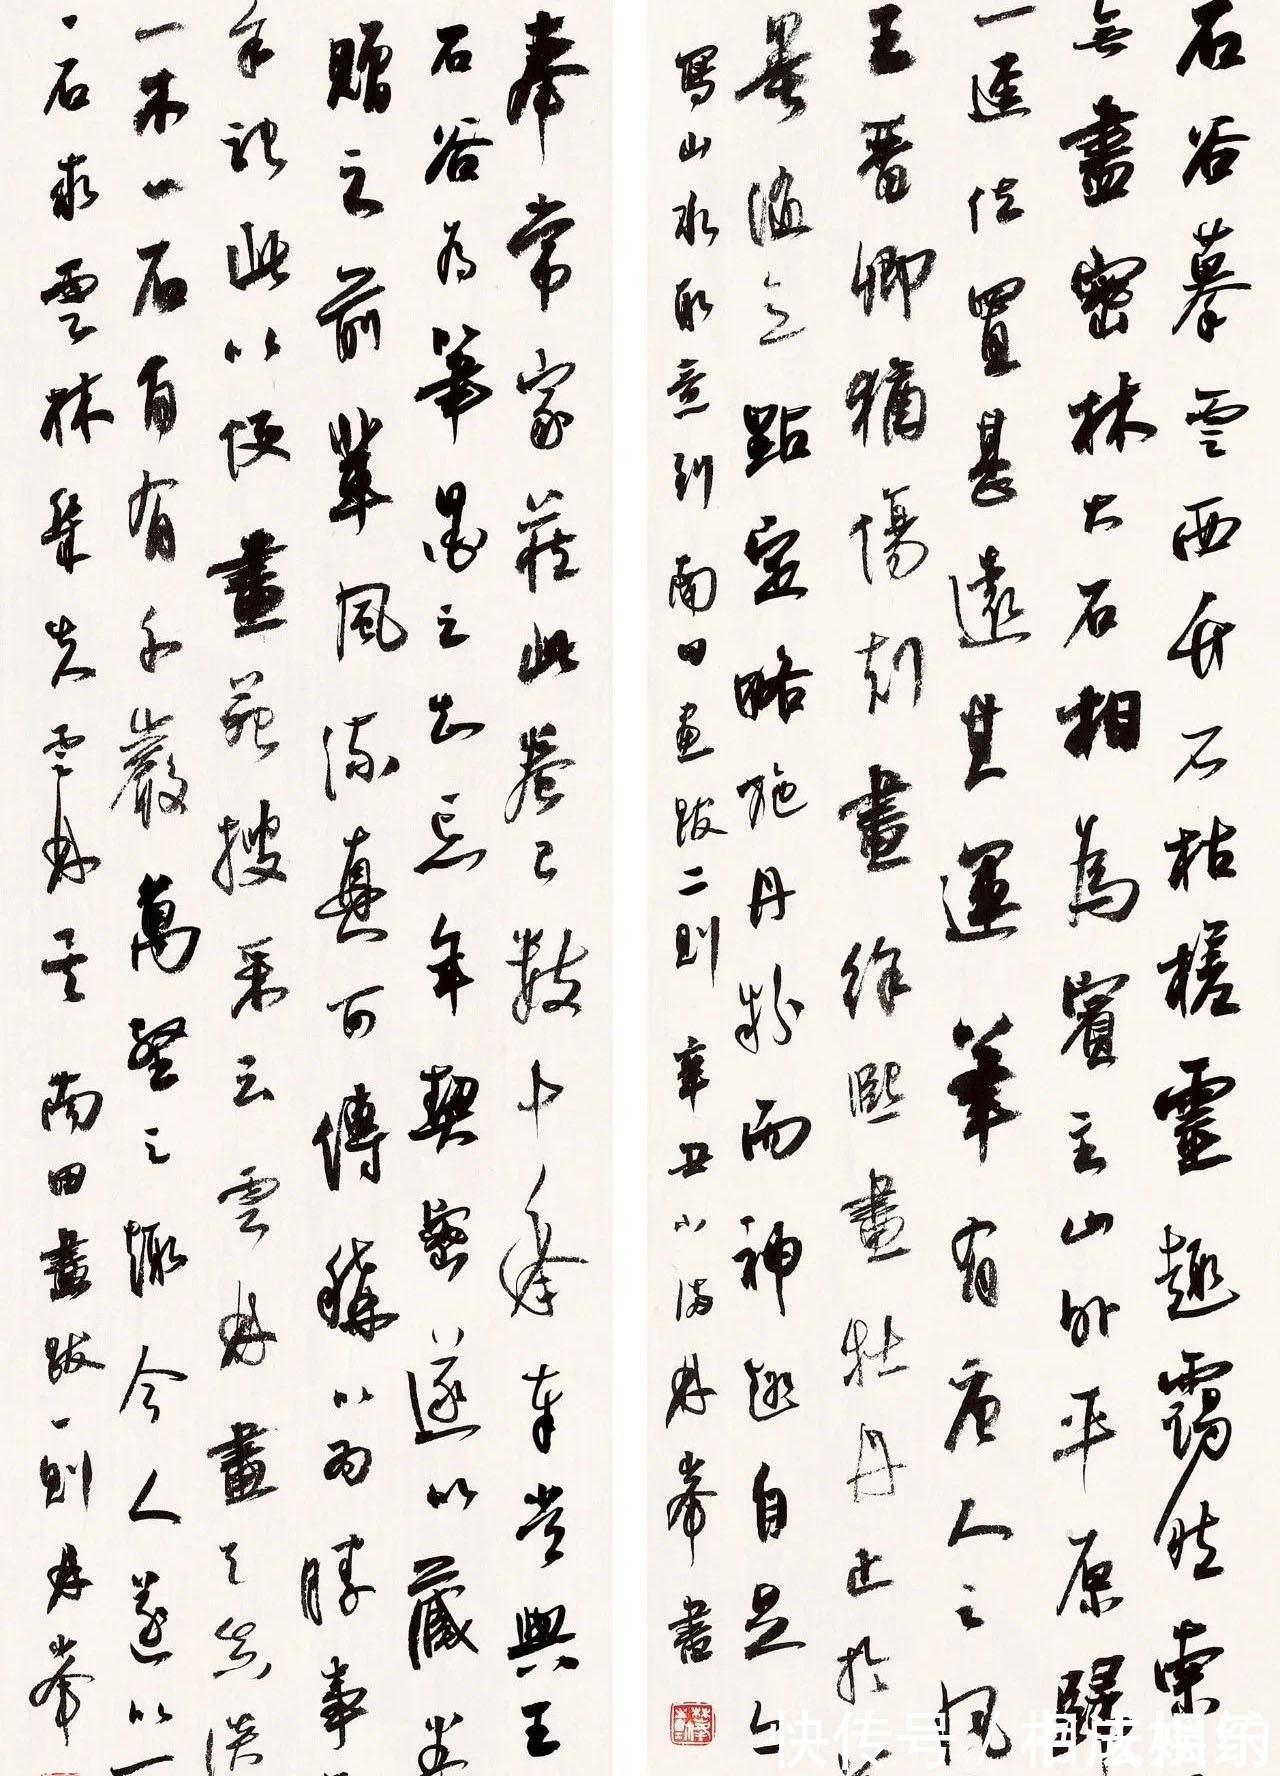 石谷摹雲西竹石枯槎靈趣靄然索
無盡密林大石相為賓主山外平原歸
一逕位置甚遠其運筆有唐人之風
王晉卿猶傷刻畫徐熙畫牡丹止於
墨隨意點定略施丹粉而神趣自足亦
寫山水取意到 南田畫跋二則 辛丑小滿 書
奉常家藏此卷已數十年 奉常與王
石谷為筆墨之知忘年契密遂以藏卷
贈之前輩風流真可傳稱以為勝事
余記此以便畫苑搜采云雲林畫天真淡
一木一石自有千巖萬壑之趣今人遂以一
一石求雲林幾失雲林矣 南田畫跋一則
快传号/